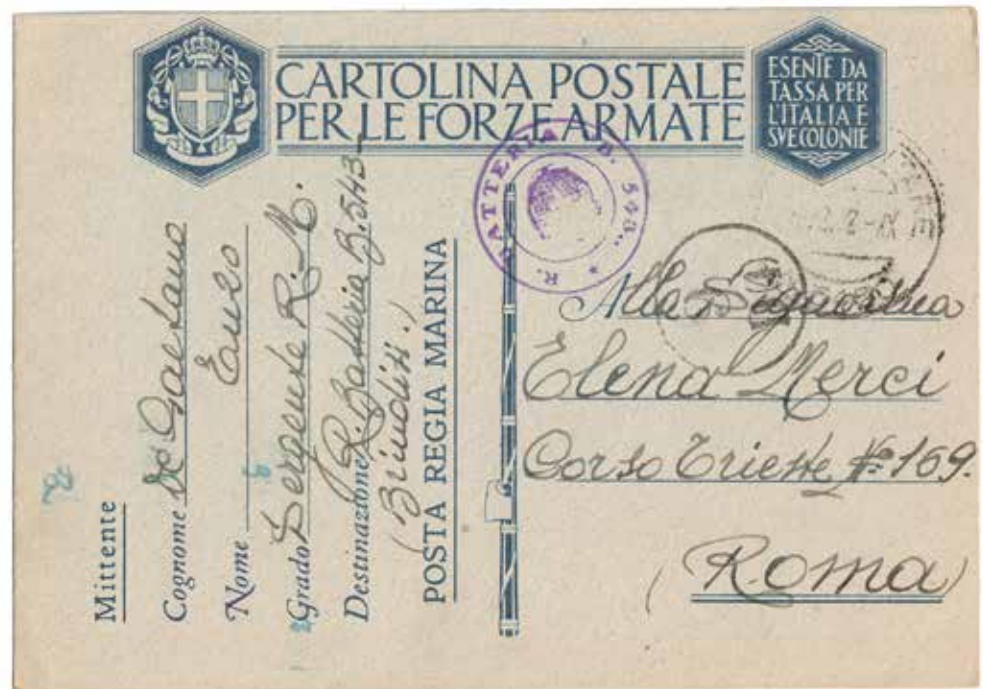 CARTOLINA POSTALE
PER LE FORZE ARMATE
ESENTE DA
TASSA PER
L'ITALIA E
SVE COLONIE
R. BATTERIA B. 543
Mittente
Cognome De Gaetano
Nome Enzo
Grado Sergente R. M.
Destinazione R. Batteria B. 543
(Brindisi.)
POSTA REGIA MARINA
Alla Signorina
Elena Merci
Corso Trieste N° 169.
(Roma)